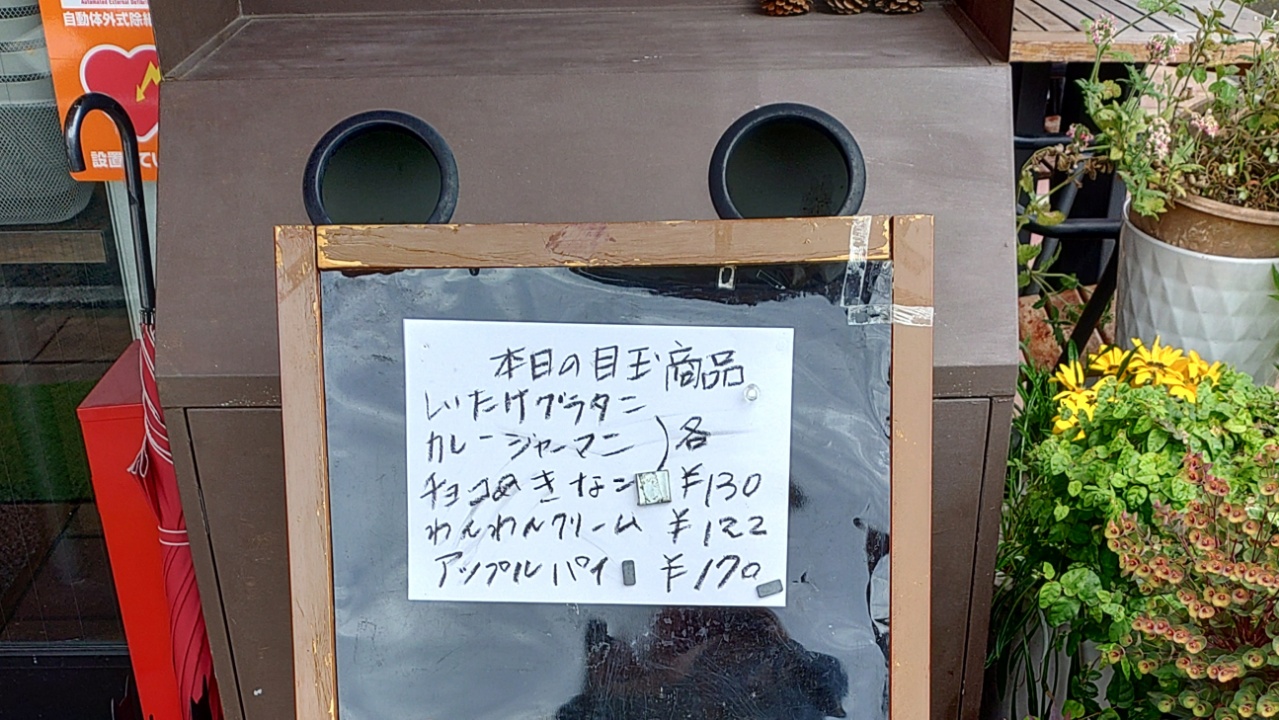 自動体外式除
設置
てい
本日の目玉商品
しいたけグラタン
カレージャーマン
各
チョコあきなこ ¥130
わんわんクリーム ¥122
アップルパイ ¥170